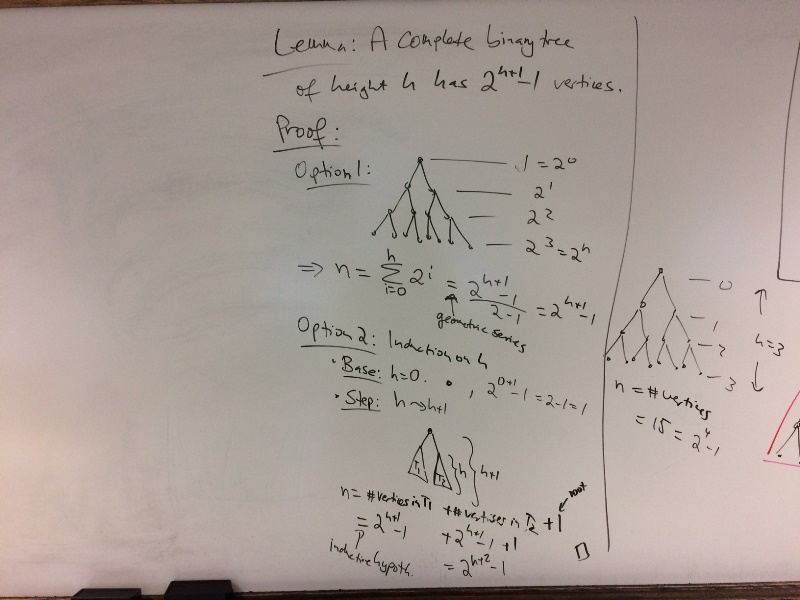 Lemma: A complete binary tree
of height h has 2^{h+1}-1 vertices.
Proof:
Option 1:
1 = 2^0
2^1
2^2
2^3 = 2^h
=> n = \sum_{i=0}^{h} 2^i = \frac{2^{h+1}-1}{2-1} = 2^{h+1}-1
geometric series
Option 2: Induction on h
• Base: h=0. • , 2^{0+1}-1 = 2-1 = 1
• Step: h → h+1
T1 T2 } h } h+1
n = # vertices in T1 + # vertises in T2 + 1 ← root
= 2^{h+1}-1 + 2^{h+1}-1 + 1
inductive hypoth. = 2^{h+2}-1
□
0
1
2
3
h=3
n = # vertices
= 15 = 2^4-1